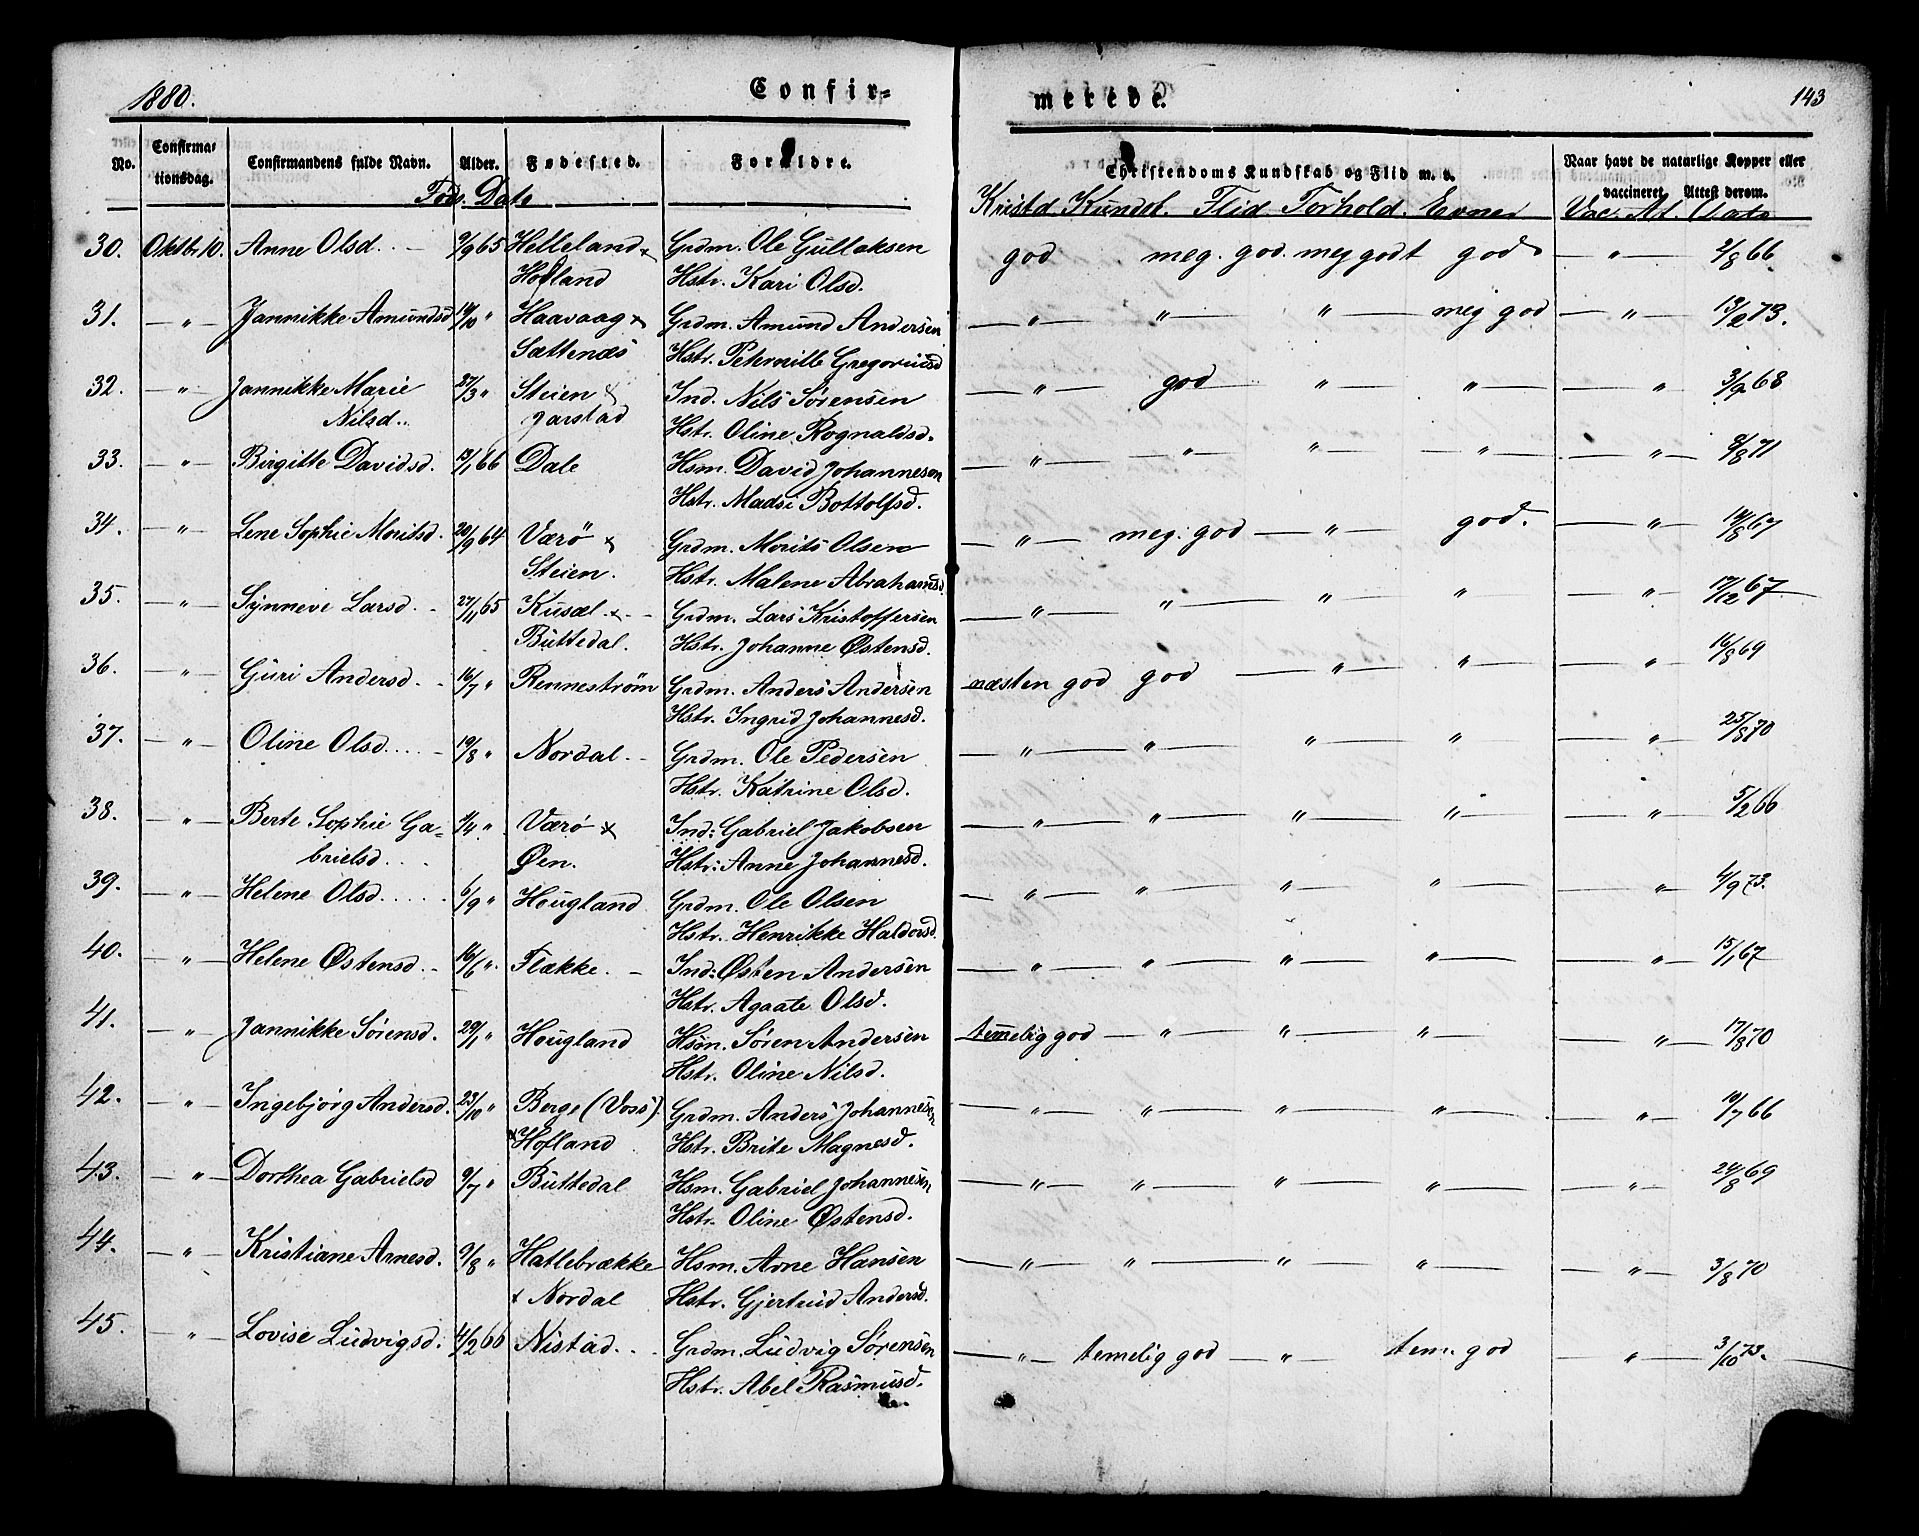 1880. Confir= merede. 143
No. Confirma- Confirmandens fulde Navn. Alder. Fødested. Forældre. Christendoms Kundskab og Flid m. v. Naar havt de naturlige Kopper eller
tionsdag. vaccineret. Attest derom.
Føds. Dato Kristd Kundsk. Flid Forhold. Evner Vac. At. Dato
30. Oktbr 10. Anne Olsd. 9/9 65 Helleland x Grdm. Ole Gullaksen god meg. god. meg godt god — " — 2/8 66
Hofland Hstr. Kari Olsd.
31. — " — Jannikke Amundsd 14/10 " Haavaag x Grdm. Amund Andersen — " — " — " — meg god — " — 13/2 73.
Sættenæs Hstr. Petrnille Gregoriusd
32. — " — Jannikke Marie 27/3 " Steien x Ind. Nils Sørensen — " — god — " — " — " — 3/9 68
Nilsd.. Jarstad Hstr. Oline Rognaldsd.
33. — " — Birgitte Davidsd. 13/1 66 Dale Hsm. David Johannesen — " — " — " — " — " — 8/8 71
Hstr. Madsi Bottolfsd.
34. — " — Lene Sophie Moritsd. 20/9 64 Værö x Grdm. Morits Olsen — " — meg. god — " — god. — " — 14/8 67
Steien. Hstr. Malene Abrahamsd.
35. — " — Synneve Larsd. 27/11 65 Kusæl x Grdm. Lars Kristoffersen — " — " — " — " — " — 17/12 67.
Büttedal. Hstr. Johanne Østensd.
36. — " — Guri Andersd. 16/7 " Rennestrøm Grdm. Anders Andersen næsten god god — " — " — " — 16/8 69
Hstr. Ingrid Johannesd.
37. — " — Oline Olsd.... 19/8 " Nordal Grdm. Ole Pedersen — " — " — " — " — " — 25/8 70
Hstr. Katrine Olsd.
38. — " — Berte Sophie Ga- 4/4 " Værö x Ind: Gabriel Jakobsen — " — " — " — " — " — 5/2 66
brielsd.... Øen. Hstr: Anne Johannesd.
39. — " — Helene Olsd..... 6/9 " Hougland Grdm. Ole Olsen — " — " — " — " — " — 4/9 73.
Hstr. Henrikke Haldorsd.
40. — " — Helene Østensd. 16/6 " Flække. Ind: Østen Andersen — " — " — " — " — " — 15/1 67
Hstr. Agaate Olsd.
41. — " — Jannikke Sørensd. 29/1 " Hougland Hsm. Søren Andersen temmelig god — " — " — " — " — 17/8 70
Hstr. Oline Nilsd.
42. — " — Ingebjørg Andersd. 23/10 " Berge (Voss). Grdm. Anders Johannesen — " — " — " — " — " — 10/7 66
x Hofland Hstr. Brite Magnesd.
43. — " — Dorthea Gabrielsd 9/7 " Büttedal Hsm. Gabriel Johannesen — " — " — " — " — " — 24/8 69
Hstr. Oline Østensd.
44. — " — Kristiane Arnesd. 9/8 " Hatlebrække Hsm. Arne Hansen — " — " — " — " — " — 3/8 70
x Nordal Hstr. Gjertrud Andersd.
45. — " — Lovise Ludvigsd. 4/2 66 Nistad.. Grdm. Ludvig Sørensen — " — temelig god — " — tem. god — " — 3/10 73.
Hstr. Abel Rasmusd.